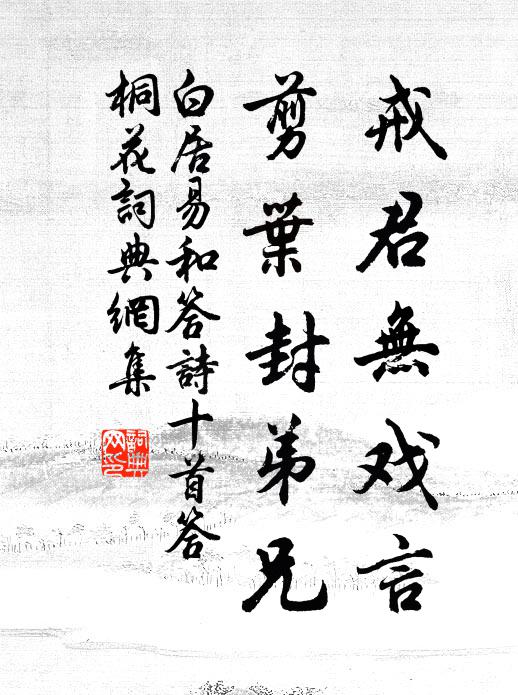 戒君無戏言
剪葉封弟兄
白居易和答詩十首答
桐花詞典網集
詞典
网印